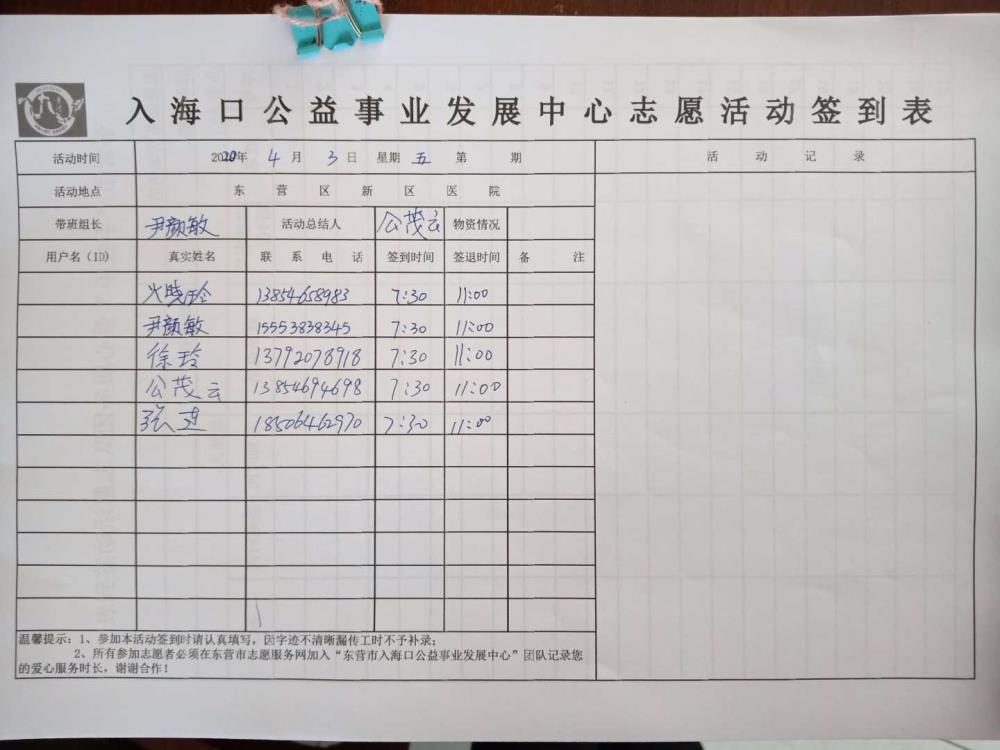 入海口公益事业发展中心志愿活动签到表
活动时间 2020年 4 月 3 日 星期 五 第 期 活动记录
活动地点 东营区新区医院
带班组长 尹颜敏 活动总结人 公茂云 物资情况
用户名(ID) 真实姓名 联系电话 签到时间 签退时间 备注
火晓玲 13854658983 7:30 11:00
尹颜敏 15553838345 7:30 11:00
徐玲 13792078918 7:30 11:00
公茂云 13854694698 7:30 11:00
张 18506462970 7:30 11:00
温馨提示:1、参加本活动签到时请认真填写,因字迹不清晰漏传工时不予补录;
2、所有参加志愿者必须在东营市志愿服务网加入“东营市入海口公益事业发展中心”团队记录您
的爱心服务时长,谢谢合作!